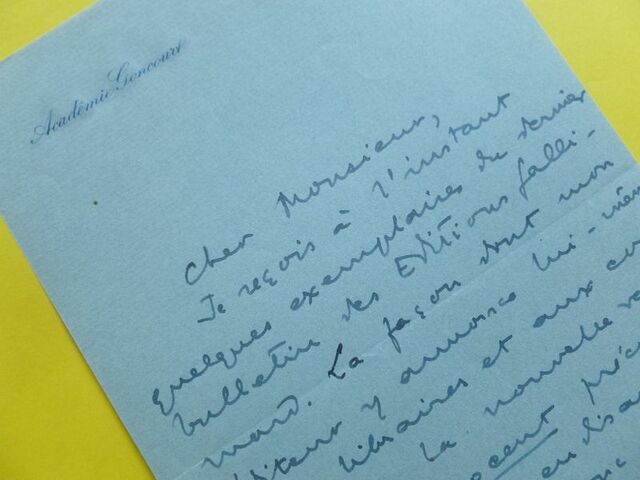 Académie Goncourt
Cher Monsieur,
Je reçois à l'instant
quelques exemplaires du dernier
bulletin des Editions Galli-
mard. La façon dont mon
diteur y annonce lui-mêm
libraires et aux
la nouvelle
ocent préc
en disa